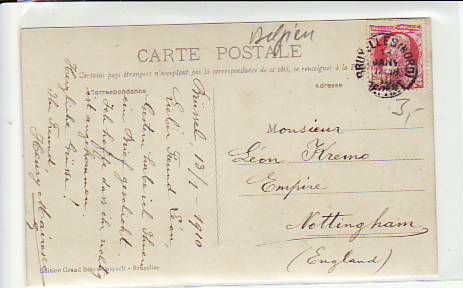 Belgien
CARTE POSTALE
Certains pays étrangers n'acceptant pas la correspondance de ce côté, se renseigner à la
Correspondance
Adresse
BRUXELLES (NORD)
JANV
3,-
Brüssel, 13/1 - 1910
Lieber Freund Léon,
Gestern habe ich Ihnen
ein Brief geschickt.
Ich hoffe dass er richtig
ist angekommen.
Herzliche Grüsse!
Ihr Freund,
Henry
Monsieur
Léon Kremo
Empire
Nottingham
(England)
Edition Grand Bazar Anspach - Bruxelles